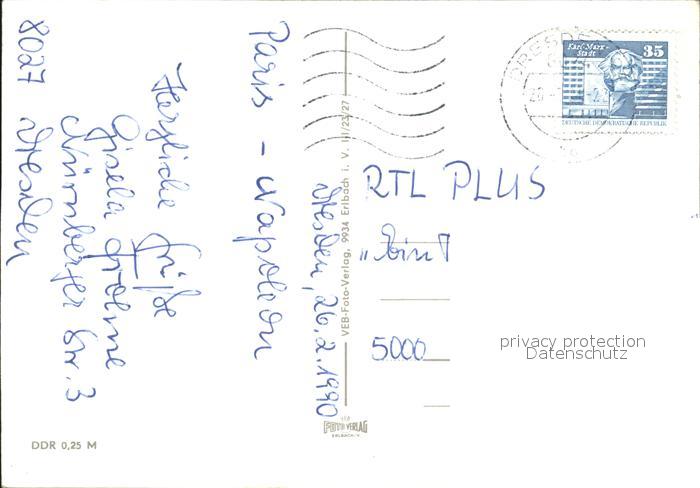 Paris - Napoleon
Herzliche Grüße
Gisela
Nürnberger Str. 3
8027 Dresden
Dresden, 26.2.1990
VEB-Foto-Verlag, 9934 Erlbach i. V. III/23/27
RTL PLUS
5000
privacy protection
Datenschutz
DRESDEN
Karl-Marx-
Stadt
35
DEUTSCHE DEMOKRATISCHE REPUBLIK
VEB
FOTO VERLAG
ERLBACH i. V.
DDR 0,25 M